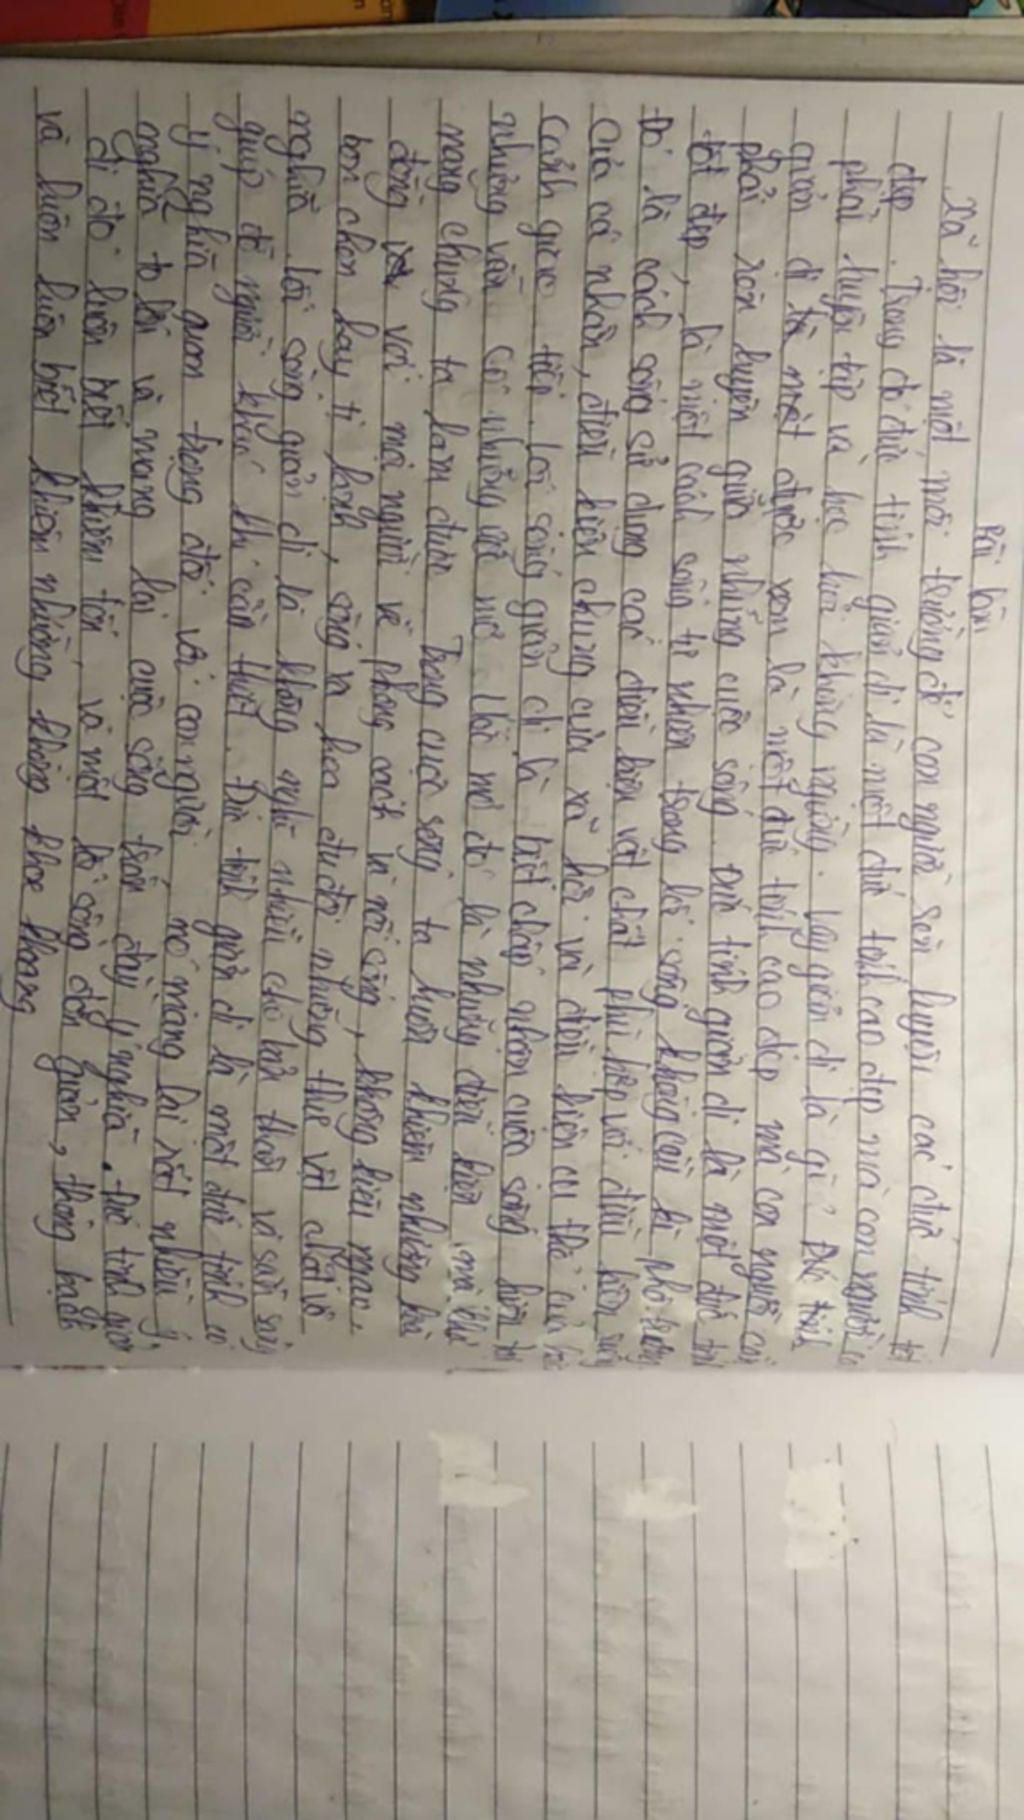 Bài làm
Xã hội là một môi trường để con người rèn luyện các đức tính
đẹp. Trong đó đức tính giản dị là một đức tính cao đẹp mà con người
phải luyện tập và học hỏi không ngừng. Vậy giản dị là gì? Đức tính
giản dị là một được xem là một đức tính cao đẹp mà con người cần
phải rèn luyện giữa những cuộc sống. Đức tính giản dị là một đức
tốt đẹp, là một cách sống tự nhiên trong lối sống không cầu kì phô
Đó là cách sống sử dụng các điều kiện vật chất phù hợp với điều kiện
của cá nhân, điều kiện chung của xã hội và điều kiện cụ thể của
cảnh giao tiếp. Lối sống giản dị là biết chấp nhận cuộc sống hiện
nhưng vẫn có những ước mơ. Ước mơ đó là những điều kiện mà khả
năng chúng ta làm được. Trong cuộc sống ta luôn khiêm nhường hòa
đồng với mọi người về phong cách và lối sống, không kiêu ngạo,
bon chen hay tị hành, sống xa hoa đua đòi những thứ vật chất vô
nghĩa. Lối sống giản dị là không nghĩ nhiều cho bản thân và sẵn sàng
giúp đỡ người khác khi cần thiết. Đức tính giản dị là một đức tính có
ý nghĩa quan trọng đối với con người, nó mang lại rất nhiều ý
nghĩa to lớn và mang lại cuộc sống tràn đầy ý nghĩa. đức tính giản
dị đó luôn biết khiêm tốn, và một lối sống đơn giản, thông bạch
và luôn luôn biết khiêm nhường không khoe khoang